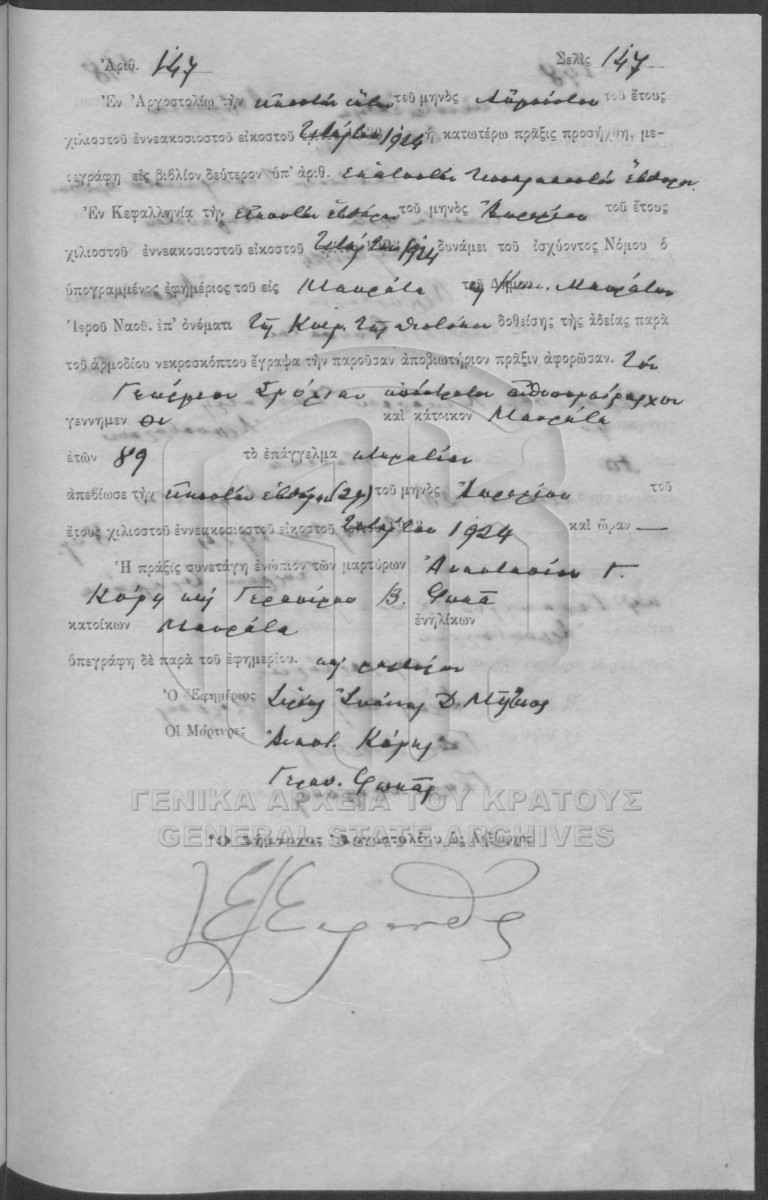 Ἀριθ. 147 Σελὶς 147
Ἐν Ἀργοστολίῳ τὴν εἰκοστὴν τοῦ μηνὸς Αὐγούστου τοῦ ἔτους
χιλιοστοῦ ἐννεακοσιοστοῦ εἰκοστοῦ τετάρτου 1924 ἡ κατωτέρω πρᾶξις προσήχθη, με-
τεγράφη εἰς βιβλίον δεύτερον ὑπ' ἀριθ. ἑκατοστὸν τεσσαρακοστὸν ἕβδομον.
Ἐν Κεφαλληνίᾳ τὴν εἰκοστὴν ἑβδόμην τοῦ μηνὸς τοῦ ἔτους
χιλιοστοῦ ἐννεακοσιοστοῦ εἰκοστοῦ τετάρτου 1924 δυνάμει τοῦ ἰσχύοντος Νόμου ὁ
ὑπογραμμένος ἐφημέριος τοῦ εἰς Μαυράτα Κοιν. Μαυράτων
Ἱεροῦ Ναοῦ. ἐπ' ὀνόματι τῆς Κοιμ. τῆς Θεοτόκου δοθείσης τῆς ἀδείας παρὰ
τοῦ ἁρμοδίου νεκροσκόπτου ἔγραψα τὴν παροῦσαν ἀποβιωτήριον πρᾶξιν ἀφορῶσαν. τὸν
Γεώργιον ἀπόστρατον ἀνθυπομοίραρχον
γεννημεν ον καὶ κάτοικον Μαυράτα
ἐτῶν 89 τὸ ἐπάγγελμα
ἀπεβίωσε τὴν εἰκοστὴν ἑβδόμην (27) τοῦ μηνὸς τοῦ
ἔτους χιλιοστοῦ ἐννεακοσιοστοῦ εἰκοστοῦ τετάρτου 1924 καὶ ὥραν —
Ἡ πρᾶξις συνετάγη ἐνώπιον τῶν μαρτύρων Ἀναστασίου Γ.
Κόμη καὶ Γερασίμου Β. Φωκᾶ
κατοίκων Μαυράτα ἐνηλίκων
ὑπεγράφη δὲ παρὰ τοῦ ἐφημερίου. καὶ μαρτύρων
Ὁ Ἐφημέριος Ἰωάννης Δ.
Οἱ Μάρτυρες Ἀναστ. Κόμης
Γερασ. Φωκᾶς
ΓΕΝΙΚΑ ΑΡΧΕΙΑ ΤΟΥ ΚΡΑΤΟΥΣ
GENERAL STATE ARCHIVES
Ὁ Δήμαρχος Ἀργοστολίου ὡς Ληξίαρχος